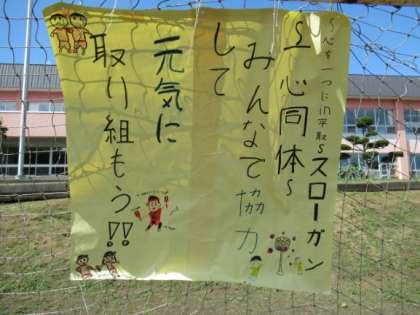 ～心を一つにin平取～スローガン
～心同体～
みんなで協力
して
元気に
取り組もう!!